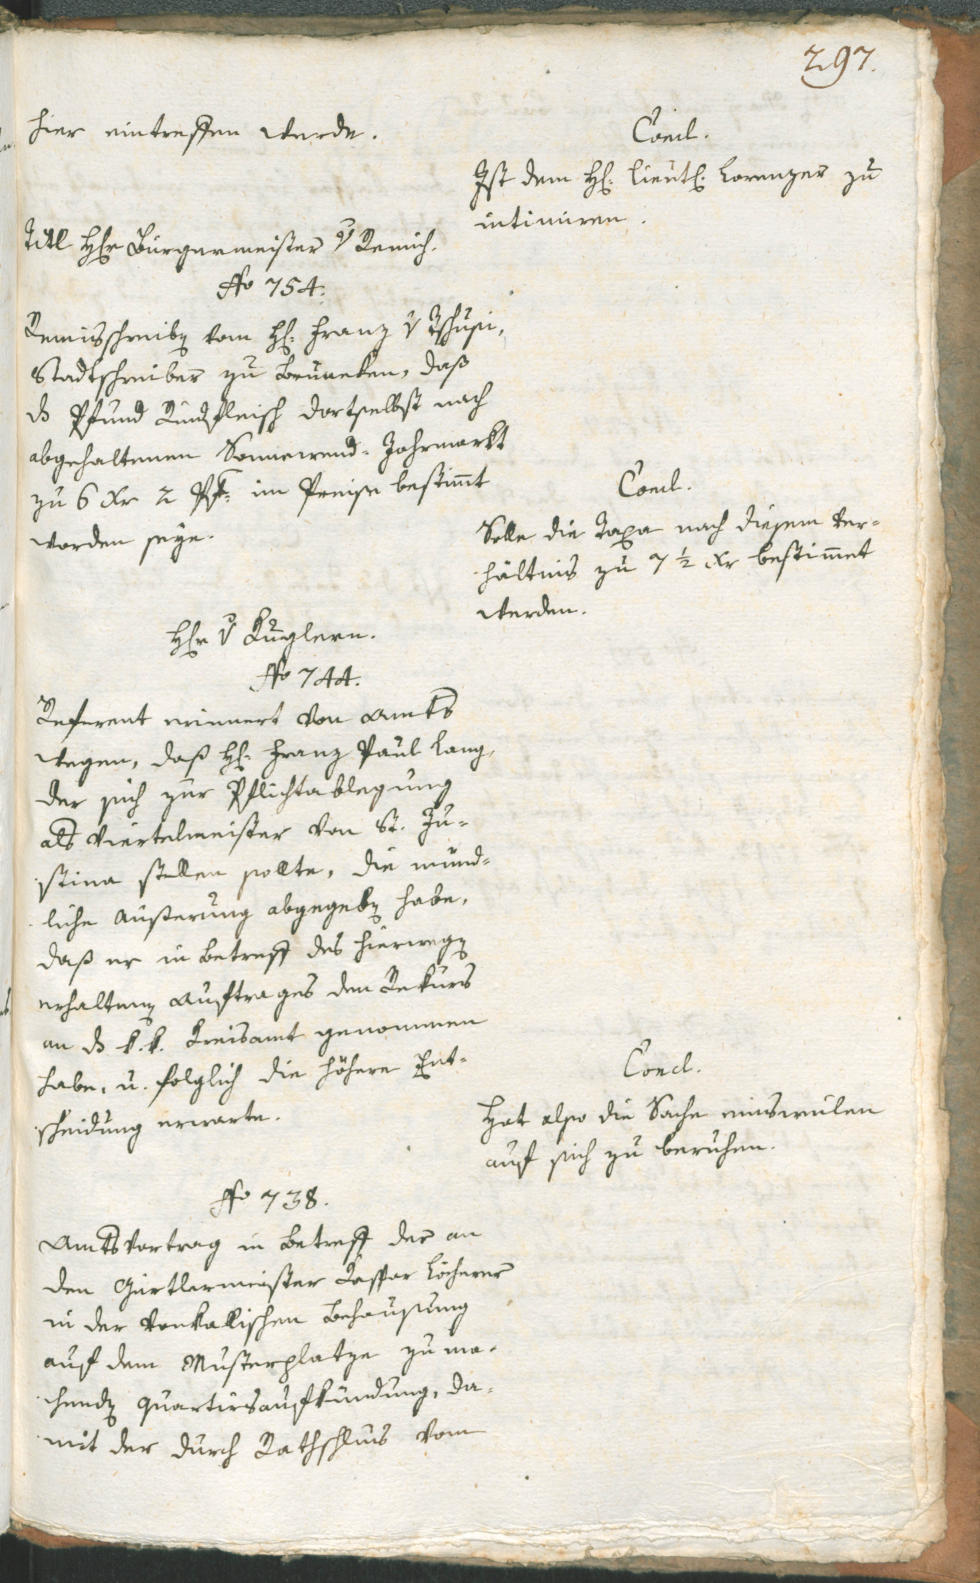 297.
hier eintreffen werde.
Concl.
Ist dem H: Lieut: Lorenzer zu
intimiren.
Titl Hhr Bürgermeister v Remich.
No 754.
Remisschreib[en] vom H: Franz v Tschusi,
Stadtschreiber zu Bruneken, daß
ds Pfund Rindfleisch dortselbst nach
abgehaltenen Sonnewend-Jahrmarkt
zu 6 Xr 2 Pf: im Preise bestim̅t
worden seye.
Concl.
Solle die Taxa nach diesem Ver-
hältnis zu 7 ½ Xr bestim̅et
werden.
Hhr v Kuglern.
No 744.
Referent erinnert von Amts
wegen, daß H: Franz Paul Lang,
der sich zur Pflichtablegung
als Viertelmeister von St. Ju-
stina stellen sollte, die münd-
liche Äußerung abgegeben habe,
daß er in Betreff des hierwegen
erhaltenen Auftrages den Rekurs
an ds k. k. Kreisamt genommen
habe, u. folglich die höhere Ent-
scheidung erwarte.
Concl.
Hat also die Sache einsweilen
auf sich zu beruhen.
No 738.
Amtsvortrag in Betreff der an
den Gürtlermeister Kaspar Löcherer
in der Vonkallischen Behausung
auf dem Musterplatze zu ma-
chenden Quartiersaufkündung, da-
mit der durch Rathschluß vom